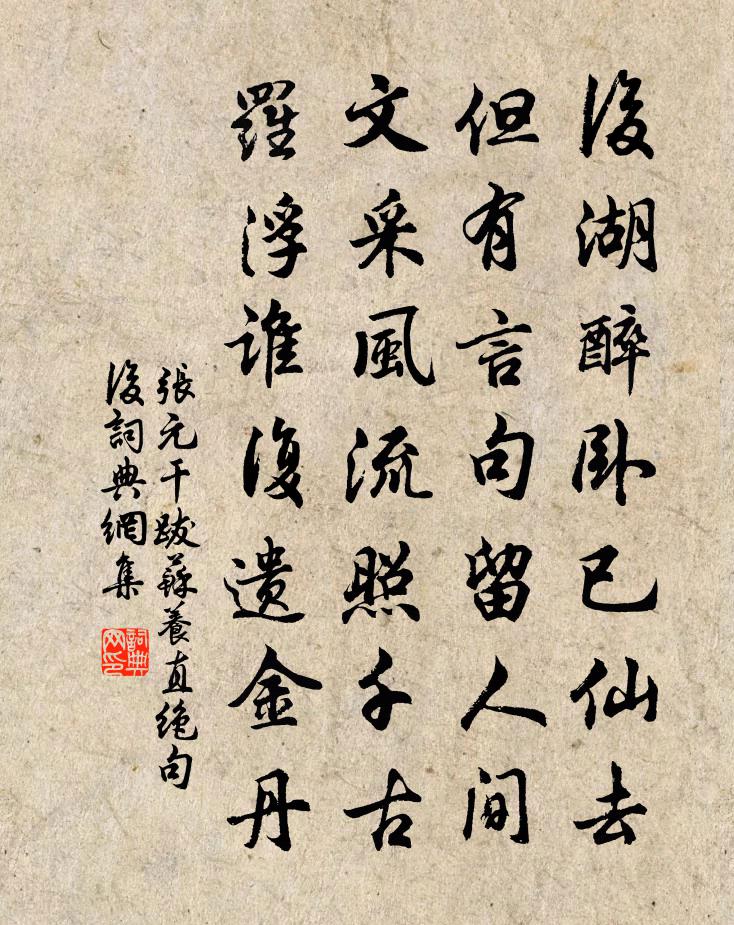 後湖醉卧已仙去
但有言句留人間
文采風流照千古
羅浮誰復遺金丹
張元干跋蘇養直絶句
後詞典網集
詞典网印